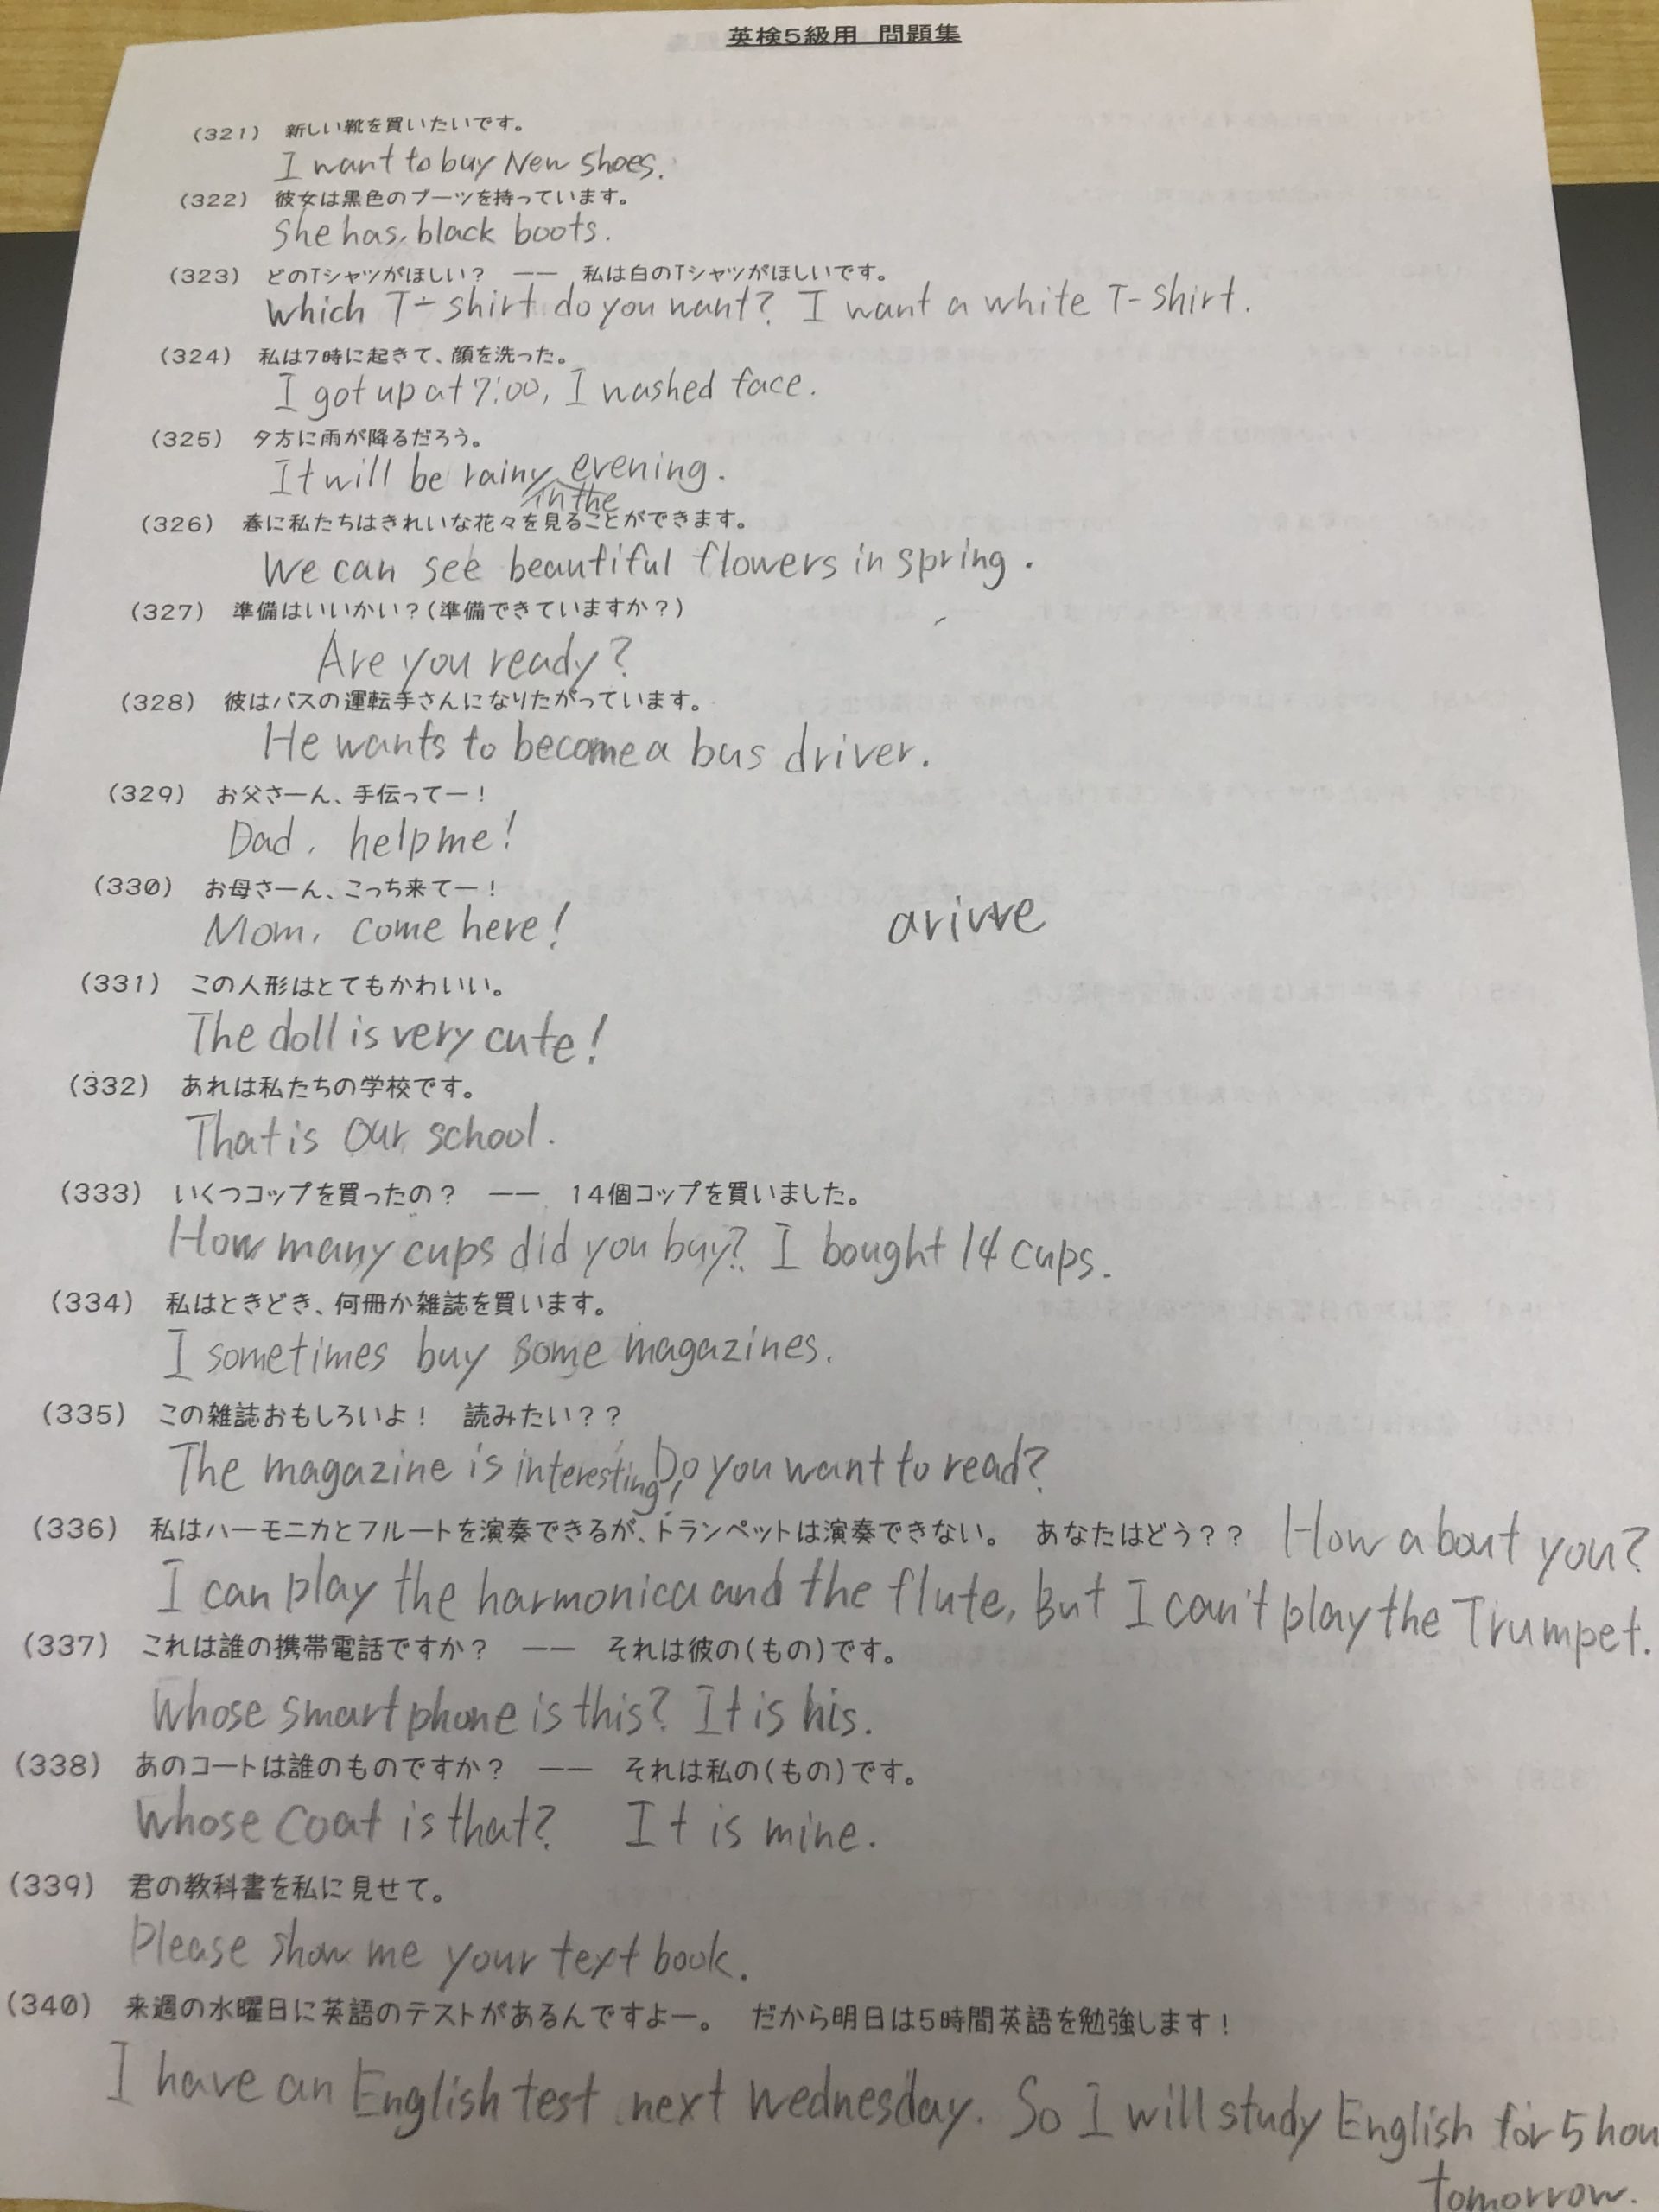 英検5級用 問題集
(321) 新しい靴を買いたいです。
I want to buy New shoes.
(322) 彼女は黒色のブーツを持っています。
She has black boots.
(323) どのTシャツがほしい? ―― 私は白のTシャツがほしいです。
Which T-shirt do you want? I want a white T-shirt.
(324) 私は7時に起きて、顔を洗った。
I got up at 7:00, I washed face.
(325) 夕方に雨が降るだろう。
It will be rainy evening.
in the
(326) 春に私たちはきれいな花々を見ることができます。
We can see beautiful flowers in spring.
(327) 準備はいいかい?(準備できていますか?)
Are you ready?
(328) 彼はバスの運転手さんになりたがっています。
He wants to become a bus driver.
(329) お父さーん、手伝ってー!
Dad, help me!
(330) お母さーん、こっち来てー!
Mom, come here!
(331) この人形はとてもかわいい。
The doll is very cute!
(332) あれは私たちの学校です。
That is our school.
(333) いくつコップを買ったの? ―― 14個コップを買いました。
How many cups did you buy? I bought 14 cups.
(334) 私はときどき、何冊か雑誌を買います。
I sometimes buy some magazines.
(335) この雑誌おもしろいよ! 読みたい??
The magazine is interesting! Do you want to read?
(336) 私はハーモニカとフルートを演奏できるが、トランペットは演奏できない。 あなたはどう?? How about you?
I can play the harmonica and the flute, But I can't play the Trumpet.
(337) これは誰の携帯電話ですか? ―― それは彼の(もの)です。
Whose smart phone is this? It is his.
(338) あのコートは誰のものですか? ―― それは私の(もの)です。
Whose coat is that? It is mine.
(339) 君の教科書を私に見せて。
Please show me your text book.
(340) 来週の水曜日に英語のテストがあるんですよー。 だから明日は5時間英語を勉強します!
I have an English test next Wednesday. So I will study English for 5 hou
tomorrow.